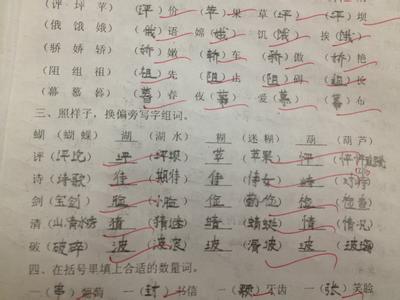 (评 坪 苹) (评)价 (苹)果 草(坪) (坪)坝
(俄 饿 娥) (俄)语 嫦(娥) 饥(饿) 挨(饿)
(骄 娇 轿) (娇)嫩 (轿)车 (骄)傲 (娇)艳
(阻 组 祖) (祖)先 (阻)止 (阻)碍 (组)长
(幕 慕 暮) (暮)春 夜(幕) 爱(慕) (幕)布
三、照样子，换偏旁写字组词。
蝴 (蝴 蝶) 湖 (湖 水) 糊 (迷 糊) 葫 (葫 芦)
评 (评比) 坪 (坪坝) 苹 (苹果) 怦
诗 (诗歌) 待 (期待) 侍 (侍女)
剑 (宝剑) 脸 (小脸) 俭 检 (检查)
清 (山清水秀) 猜 (猜谜) 蜻 (蜻蜓) 情 (情况)
破 (破碎) 波 (波浪) 坡 (滑坡) 玻 (玻璃)
四、在括号里填上合适的数量词。
一(串)葡萄 一(封)书信 一(颗)牙齿 一(张)笑脸